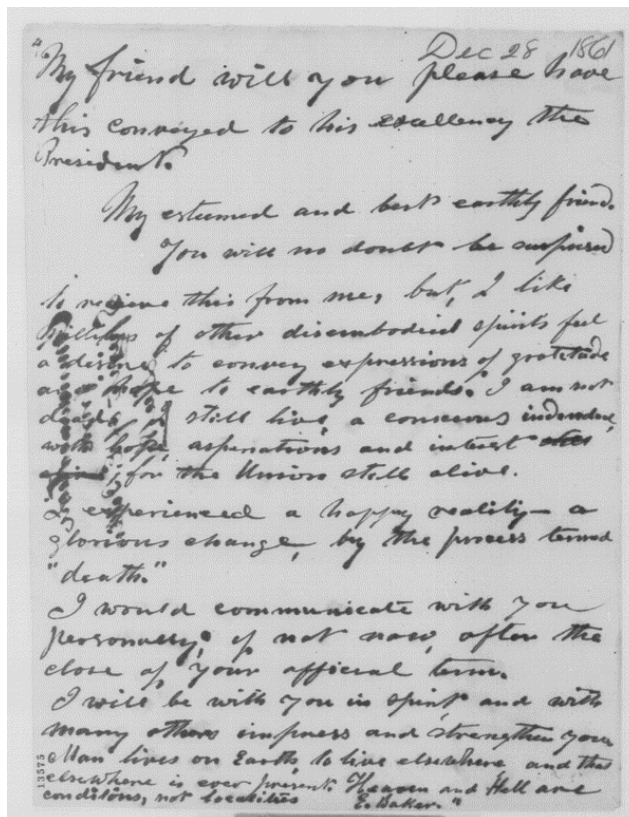 Dec 28 1861
"My friend will you please have
this conveyed to his excellency the
President.
My esteemed and best earthly friend.
You will no doubt be surprised
to recieve this from me, but, I like
millions of other disembodied spirits feel
a desire to convey expressions of gratitude
and hope to earthly friends. I am not
dead. I still live, a conscious individual,
with hope, aspirations and interest
for the Union still alive.
I experienced a happy reality — a
glorious change, by the process termed
"death."
I would communicate with you
personally, if not now, after the
close of your official term.
I will be with you in spirit and with
many others impress and strengthen you.
Man lives on Earth, to live elsewhere and that
elsewhere is ever present. Heaven and Hell are
conditions, not localities E. Baker."
13575